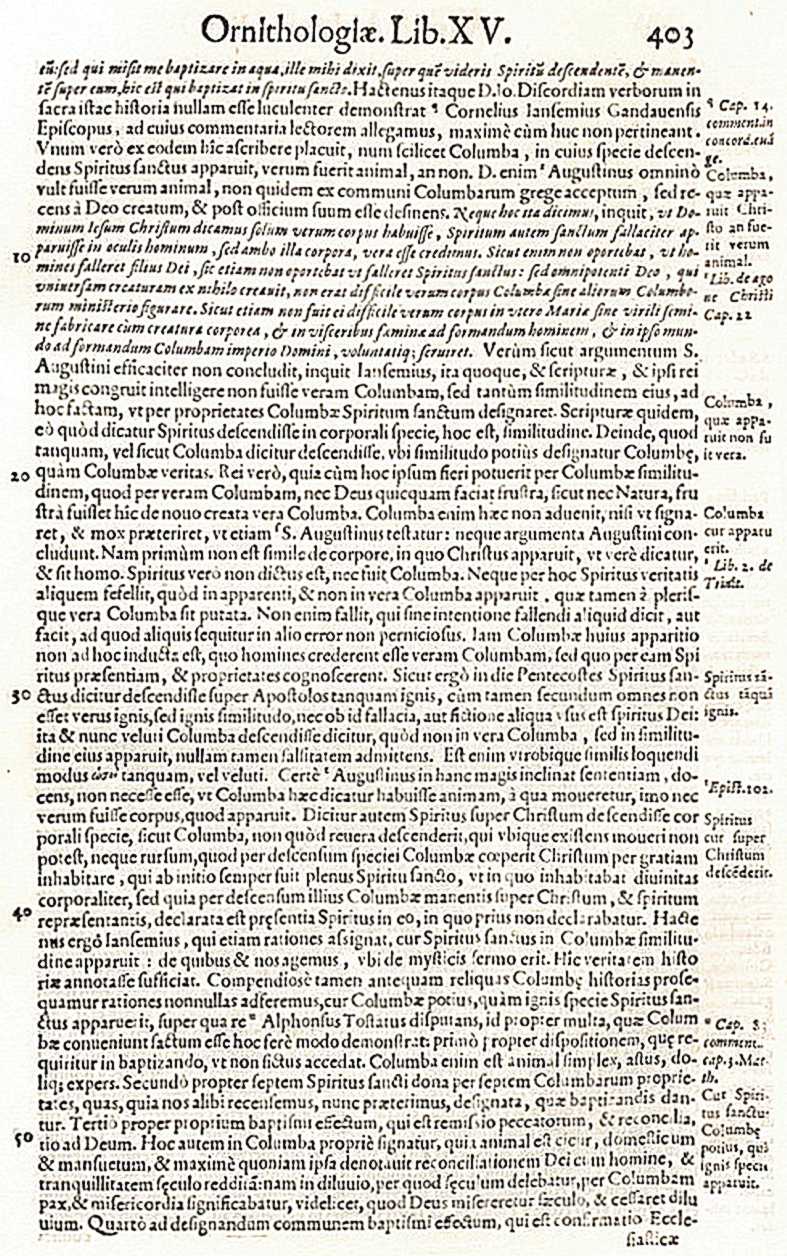 Ornithologiæ. Lib. XV. 403
eũ: sed qui misit me baptizare in aqua, ille mihi dixit, super quẽ videris Spiritũ descendentẽ, & manen-
tẽ super eum, hic est qui baptizat in spiritu sancto. Hactenus itaque D. Io. Discordiam verborum in
sacra istac historia nullam esse luculenter demonstrat Cornelius Iansemius Gandauensis
Episcopus, ad cuius commentaria lectorem allegamus, maximè cùm huc non pertineant.
Vnum verò ex eodem hic ascribere placuit, num scilicet Columba, in cuius specie descen-
dens Spiritus sanctus apparuit, verum fuerit animal, an non. D. enim Augustinus omninò
vult fuisse verum animal, non quidem ex communi Columbarum grege acceptum, sed re-
cens à Deo creatum, & post officium suum esse desinens. Neque hoc ita dicimus, inquit, vt Do-
minum Iesum Christum dicamus solum verum corpus habuisse, Spiritum autem sanctum fallaciter ap-
paruisse in oculis hominum, sed ambo illa corpora, vera esse credimus. Sicut enim non oportebat, vt ho-
10 mines falleret filius Dei, sic etiam non oportebat vt falleret Spiritus sanctus: sed omnipotenti Deo, qui
vniuersam creaturam ex nihilo creauit, non erat difficile verum corpus Columbæ sine aliorum Columbo-
rum ministerio figurare. Sicut etiam non fuit ei difficile verum corpus in vtero Mariæ sine virili semi-
ne fabricare cùm creatura corporea, & in visceribus fæminæ ad formandum hominem, & in ipso mun-
do ad formandum Columbam imperio Domini, voluntatiq; seruiret. Verùm sicut argumentum S.
Augustini efficaciter non concludit, inquit Iansemius, ita quoque, & scripturæ, & ipsi rei
magis congruit intelligere non fuisse veram Columbam, sed tantùm similitudinem eius, ad
hoc factam, vt per proprietates Columbæ Spiritum sanctum designaret. Scripturæ quidem,
eò quòd dicatur Spiritus descendisse in corporali specie, hoc est, similitudine. Deinde, quod
tanquam, vel sicut Columba dicitur descendisse. vbi similitudo potiùs designatur Columbę,
20 quàm Columbæ veritas. Rei verò, quia cùm hoc ipsum fieri potuerit per Columbæ similitu-
dinem, quod per veram Columbam, nec Deus quicquam faciat frustra, sicut nec Natura, fru
strà fuisset hîc de nouo creata vera Columba. Columba enim hæc non aduenit, nisi vt signa-
ret, & mox præteriret, vt etiam S. Augustinus testatur: neque argumenta Augustini con-
cludunt. Nam primùm non est simile de corpore, in quo Christus apparuit, vt verè dicatur,
& sit homo. Spiritus verò non dictus est, nec fuit Columba. Neque per hoc Spiritus veritatis
aliquem fefellit, quòd in apparenti, & non in vera Columba apparuit, quæ tamen à pleris-
que vera Columba sit putata. Non enim fallit, qui sine intentione fallendi aliquid dicit, aut
facit, ad quod aliquis sequitur in alio error non perniciosus. Iam Columbæ huius apparitio
non ad hoc inducta est, quo homines crederent esse veram Columbam, sed quo per eam Spi
ritus præsentiam, & proprietates cognoscerent. Sicut ergò in die Pentecostes Spiritus san-
30 ctus dicitur descendisse super Apostolos tanquam ignis, cùm tamen secundum omnes non
esset verus ignis, sed ignis similitudo, nec ob id fallacia, aut fictione aliqua vsus est spiritus Dei:
ita & nunc veluti Columba descendisse dicitur, quòd non in vera Columba, sed in similitu-
dine eius apparuit, nullam tamen falsitatem admittens. Est enim vtrobique similis loquendi
modus ὡσεὶ tanquam, vel veluti. Certè Augustinus in hanc magis inclinat sententiam, do-
cens, non necesse esse, vt Columba hæc dicatur habuisse animam, à qua moueretur, imo nec
verum fuisse corpus, quod apparuit. Dicitur autem Spiritus super Christum descendisse cor
porali specie, sicut Columba, non quòd reuera descenderit, qui vbique existens moueri non
potest, neque rursum, quod per descensum speciei Columbæ cœperit Christum per gratiam
inhabitare, qui ab initio semper fuit plenus Spiritu sancto, vt in quo inhabitabat diuinitas
corporaliter, sed quia per descensum illius Columbæ manentis super Christum, & spiritum
40 repræsentantis, declarata est pręsentia Spiritus in eo, in quo prius non declarabatur. Hacte
nus ergò Iansemius, qui etiam rationes assignat, cur Spiritus sanctus in Columbæ similitu-
dine apparuit: de quibus & nos agemus, vbi de mysticis sermo erit. Hîc veritatem histo
riæ annotasse sufficiat. Compendiosè tamen antequam reliquas Columbę historias prose-
quamur rationes nonnullas adferemus, cur Columbæ potius, quàm ignis specie Spiritus san-
ctus apparuerit, super qua re Alphonsus Tostatus disputans, id propter multa, quæ Colum
bæ conueniunt factum esse hoc ferè modo demonstrat: primò propter dispositionem, quę re-
quiritur in baptizando, vt non fictus accedat. Columba enim est animal simplex, astus, do-
liq; expers. Secundò propter septem Spiritus sancti dona per septem Columbarum proprie-
tates, quas, quia nos alibi recensemus, nunc præterimus, designata, quæ baptizandis dan-
tur. Tertiò proper proprium baptismi effectum, qui est remissio peccatorum, & reconcilia,
50 tio ad Deum. Hoc autem in Columba propriè signatur, quia animal est cicur, domesticum
& mansuetum, & maximè quoniam ipsa denotauit reconciliationem Dei cum homine, &
tranquillitatem sęculo redditã: nam in diluuio, per quod sęculum delebatur, per Columbam
pax, & misericordia significabatur, videlicet, quod Deus misereretur sæculo, & cessaret dilu
uium. Quartò ad designandum communem baptismi effectum, qui est confirmatio Eccle-
siasticæ
Cap. 14.
comment. in
concord. euã
ge.
Columba,
quæ appa-
ruit Chri-
sto an fue-
rit verum
animal.
Lib. de ago
ne Christi
Cap. 22
Columba,
quæ appa-
ruit non fu
it vera.
Columba
cur apparu
erit.
Lib. 2. de
Trinit.
Spiritus sã-
ctus tãquã
ignis.
Epist. 102.
Spiritus
cur super
Christum
descẽderit.
Cap. 8;
comment.
cap. 3. Mat-
th.
Cur Spiri-
tus sanctus
Columbę
potius, quã
ignis specie
apparuit.